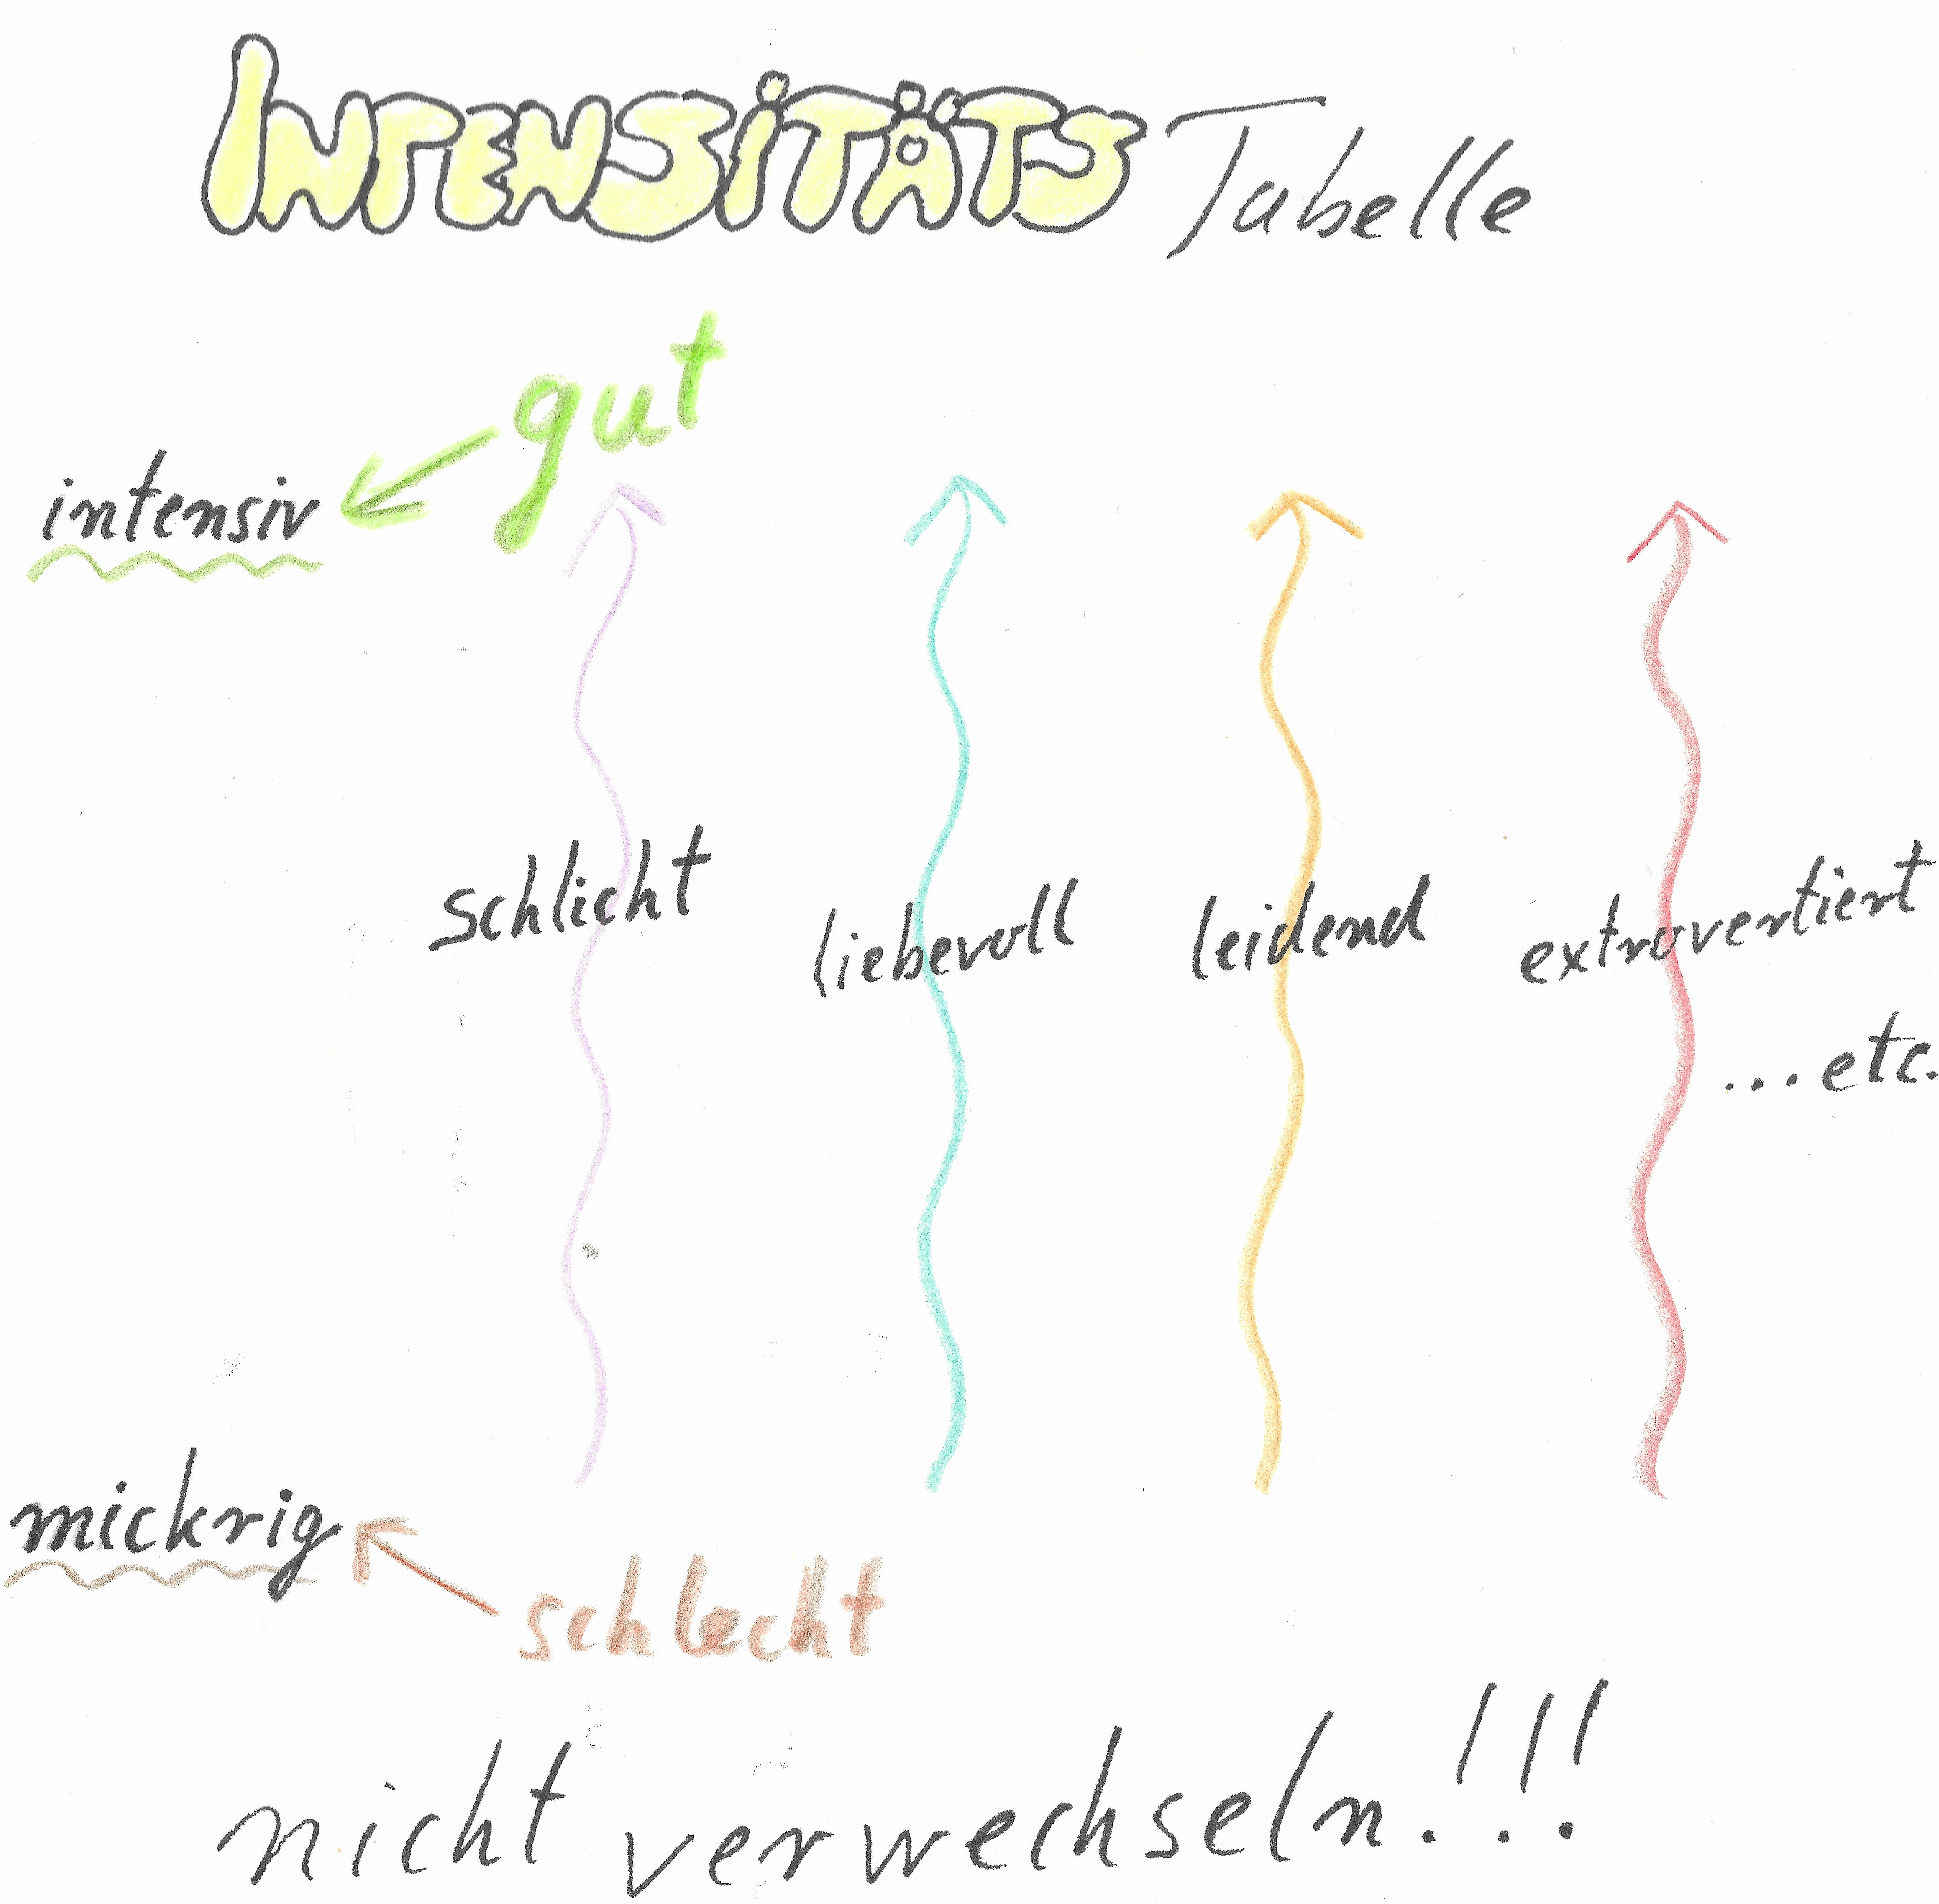 INTENSiTÄTS Tabelle
gut
intensiv
schlicht liebevoll leidend extrovertiert
...etc.
mickrig
schlecht
nicht verwechseln!!!